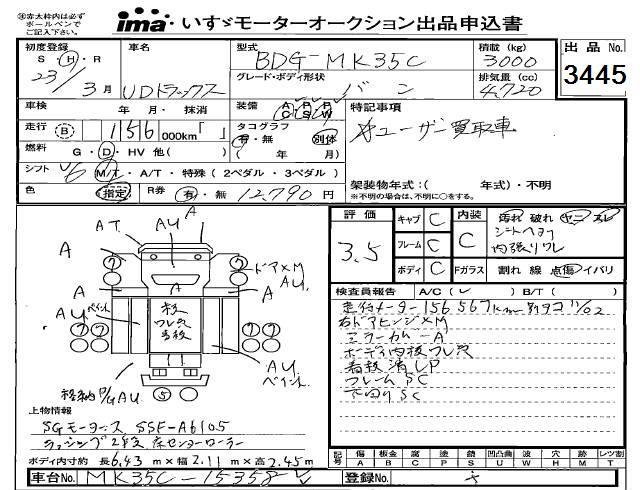 ㊟赤太枠内は必ず
ボールペンで
ご記入下さい。
ima いすゞモーターオークション出品申込書
初度登録 車名 型式 積載 (kg) 出品No.
S・H・R UDトラックス BDG-MK35C 3000 3445
23年3月 グレード・ボディ形状 バン 排気量 (cc) 4,720
車検 年・月・抹消 装備 A/C P/S P/W 特記事項
走行 B 156 000km「 」 タコグラフ 有・無 別体 ユーザー買取車
燃料 G・D・HV 他( ) ( 年 月)
シフト 6 M/T・A/T・特殊 (2ペダル・3ペダル) 架装物年式:( 年式)・不明
色 指定 R券 有・無 12,790円 ※不明の場合は、不明に○をする。
評価 3.5 キャブ C 内装 C 汚れ 破れ ヤニ スレ
フレーム C シートヘタリ
内張りワレ
ボディ C Fガラス 割れ 線 点傷 イバリ
A A AT AU
A A
ドア×M
AU
ペイント AU A
AU
AU ペイント
格納P/G AU 5
検査員報告 A/C( ✓ ) B/T( )
走行メーター156567km 別タコ11/02
右ドアヒンジ×M
ミラーカバーA
ボディ内板ワレ穴
看板消しP
フレームSC
下回りSC
上物情報
SGモータース SSF-A6105
ラッシング2段 床センターローラー
ボディ内寸約 長6.43m×幅2.11m×高2.45m
記号 傷 板金 腐 塗 錆 凹凸曲 波 穴 跡 レツ割
A B C P S U W H M T
車台No. MK35C-15358 登録No.